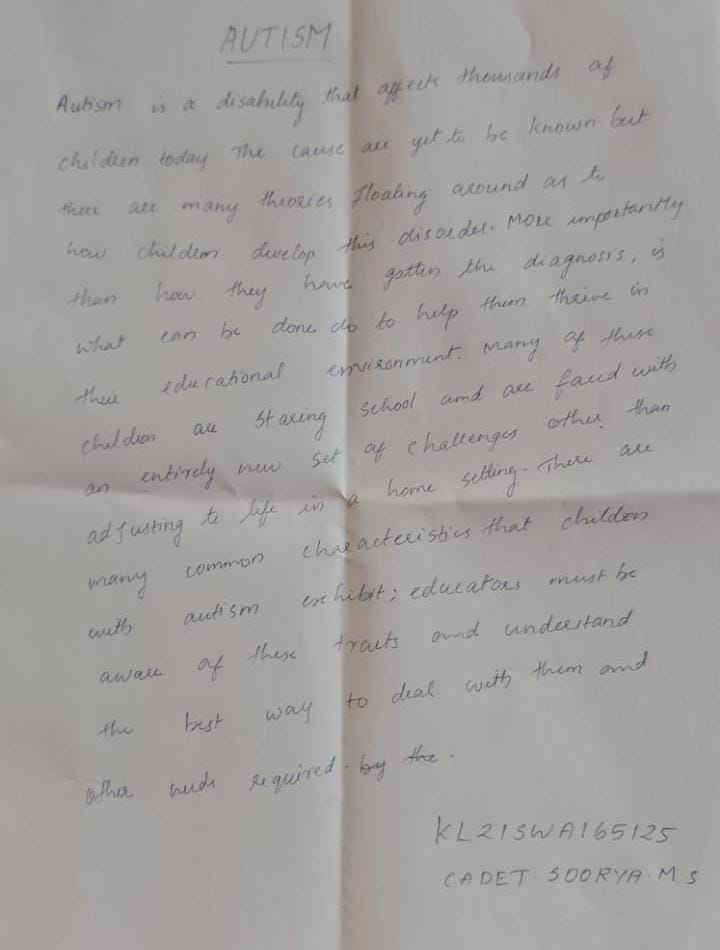 AUTISM
Autism is a disability that affects thousands of
children today. The cause are yet to be known but
there are many theories floating around as to
how children develop this disorder. More importantly
than how they have gotten the diagnosis, is
what can be done do to help them thrive in
their educational environment. Many of these
children are staring school and are faced with
an entirely new set of challenges other than
adjusting to life in a home setting. There are
many common characteristics that children
with autism exhibit; educators must be
aware of these traits and understand
the best way to deal with them and
other needs required. by the.
KL21SWA165125
CADET. SOORYA. M. S